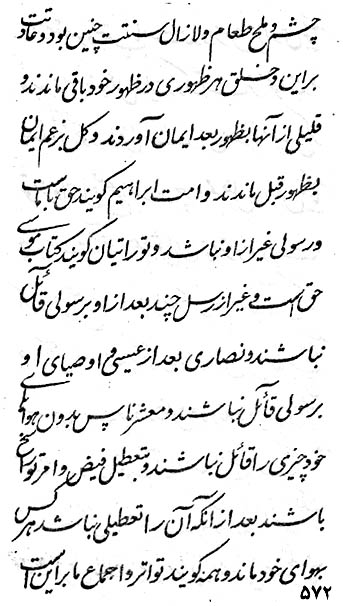 چشم و ملح طعام و لازال سنت چنین بوده و عادت
براین و خلق هر ظهوری در ظهور خود باقی ماندند و
قلیلی از آنها بظهور بعد ایمان آوردند و کل بزعم ایمان
بظهور قبل ماندند و امت ابراهیم کویند حق با ماست
و رسولی غیر از او نباشد و توراتیان کویند کتاب موسی
حق است و غیر از رسل چند بعد از او برسولی قائل
نباشند و نصاری بعد از عیسی و اوصیای او
برسولی قائل نباشند و معشر ناس بدون هوای
خود چیزی را قائل نباشند و بتعطیل فیض و امر تو راسخ
باشند بعد از آنکه آن را تعطیلی نباشد هر کس
بهوای خود ماند و همه کویند تواتر و اجماع ما براین است
۵۷۲